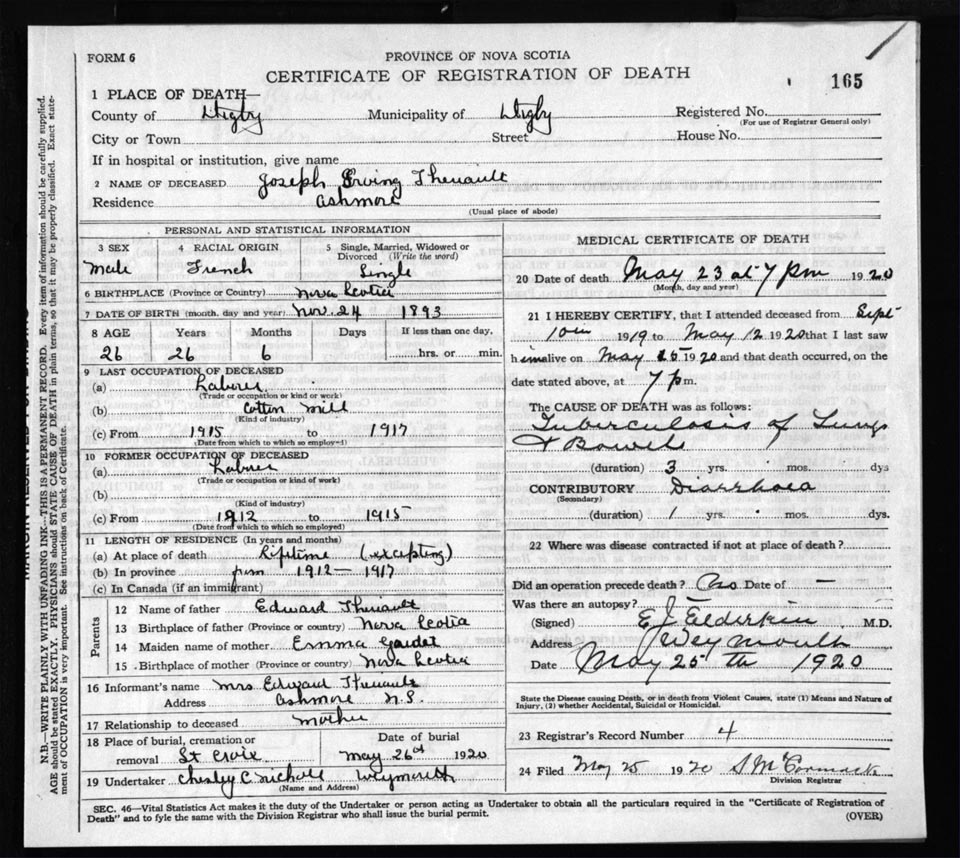 FORM 6
PROVINCE OF NOVA SCOTIA
CERTIFICATE OF REGISTRATION OF DEATH
165
1 PLACE OF DEATH—
County of Digby Municipality of Digby Registered No.
(For use of Registrar General only)
City or Town Street House No.
If in hospital or institution, give name
2 NAME OF DECEASED Joseph Irving Theriault
Residence Ashmore
(Usual place of abode)
PERSONAL AND STATISTICAL INFORMATION
3 SEX 4 RACIAL ORIGIN 5 Single, Married, Widowed or
Divorced (Write the word)
Male French Single
6 BIRTHPLACE (Province or Country) Nova Scotia
7 DATE OF BIRTH (month, day and year) Nov. 24 1893
8 AGE Years Months Days If less than one day,
26 26 6 hrs. or min.
9 LAST OCCUPATION OF DECEASED
(a) Laborer
(Trade or occupation or kind or work)
(b) Cotton Mill
(Kind of industry)
(c) From 1915 to 1917
(Date from which to which so employed)
10 FORMER OCCUPATION OF DECEASED
(a) Laborer
(Trade or occupation or kind of work)
(b)
(Kind of industry)
(c) From 1912 to 1915
(Date from which to which so employed)
11 LENGTH OF RESIDENCE (In years and months)
(a) At place of death Lifetime (excepting)
(b) In province from 1912 — 1917
(c) In Canada (if an immigrant)
Parents
12 Name of father Edward Theriault
13 Birthplace of father (Province or country) Nova Scotia
14 Maiden name of mother Emma Gaudet
15 Birthplace of mother (Province or country) Nova Scotia
16 Informant's name Mrs Edward Theriault
Address Ashmore N.S.
17 Relationship to deceased Mother
18 Place of burial, cremation or Date of burial
removal St Croix May 26th 1920
19 Undertaker Chesley C Nichols Weymouth
(Name and Address)
MEDICAL CERTIFICATE OF DEATH
20 Date of death May 23 at 7 pm 1920
(Month, day and year)
21 I HEREBY CERTIFY, that I attended deceased from Sept
10th 1919 to May 12 1920 that I last saw
him alive on May 15 1920 and that death occurred, on the
date stated above, at 7 p m.
The CAUSE OF DEATH was as follows:
Tuberculosis of Lungs
& Bowels
(duration) 3 yrs. mos. dys
CONTRIBUTORY Diarrhoea
(Secondary)
(duration) 1 yrs. mos. dys.
22 Where was disease contracted if not at place of death?
Did an operation precede death? No Date of —
Was there an autopsy? —
(Signed) E J Elderkin M.D.
Address Weymouth
Date May 25th 1920
State the Disease causing Death, or in death from Violent Causes, state (1) Means and Nature of
Injury, (2) whether Accidental, Suicidal or Homicidal.
23 Registrar's Record Number 4
24 Filed May 25 1920 S McCormack
Division Registrar
SEC. 46—Vital Statistics Act makes it the duty of the Undertaker or person acting as Undertaker to obtain all the particulars required in the "Certificate of Registration of
Death" and to fyle the same with the Division Registrar who shall issue the burial permit. (OVER)
N.B.—WRITE PLAINLY WITH UNFADING INK—THIS IS A PERMANENT RECORD. Every item of information should be carefully supplied.
AGE should be stated EXACTLY. PHYSICIANS should STATE CAUSE OF DEATH in plain terms, so that it may be properly classified. Exact state-
ment of OCCUPATION is very important. See instructions on back of Certificate.